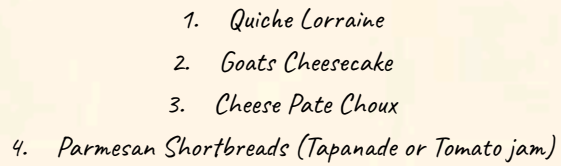 1. Quiche Lorraine
2. Goats Cheesecake
3. Cheese Pate Choux
4. Parmesan Shortbreads (Tapanade or Tomato jam)